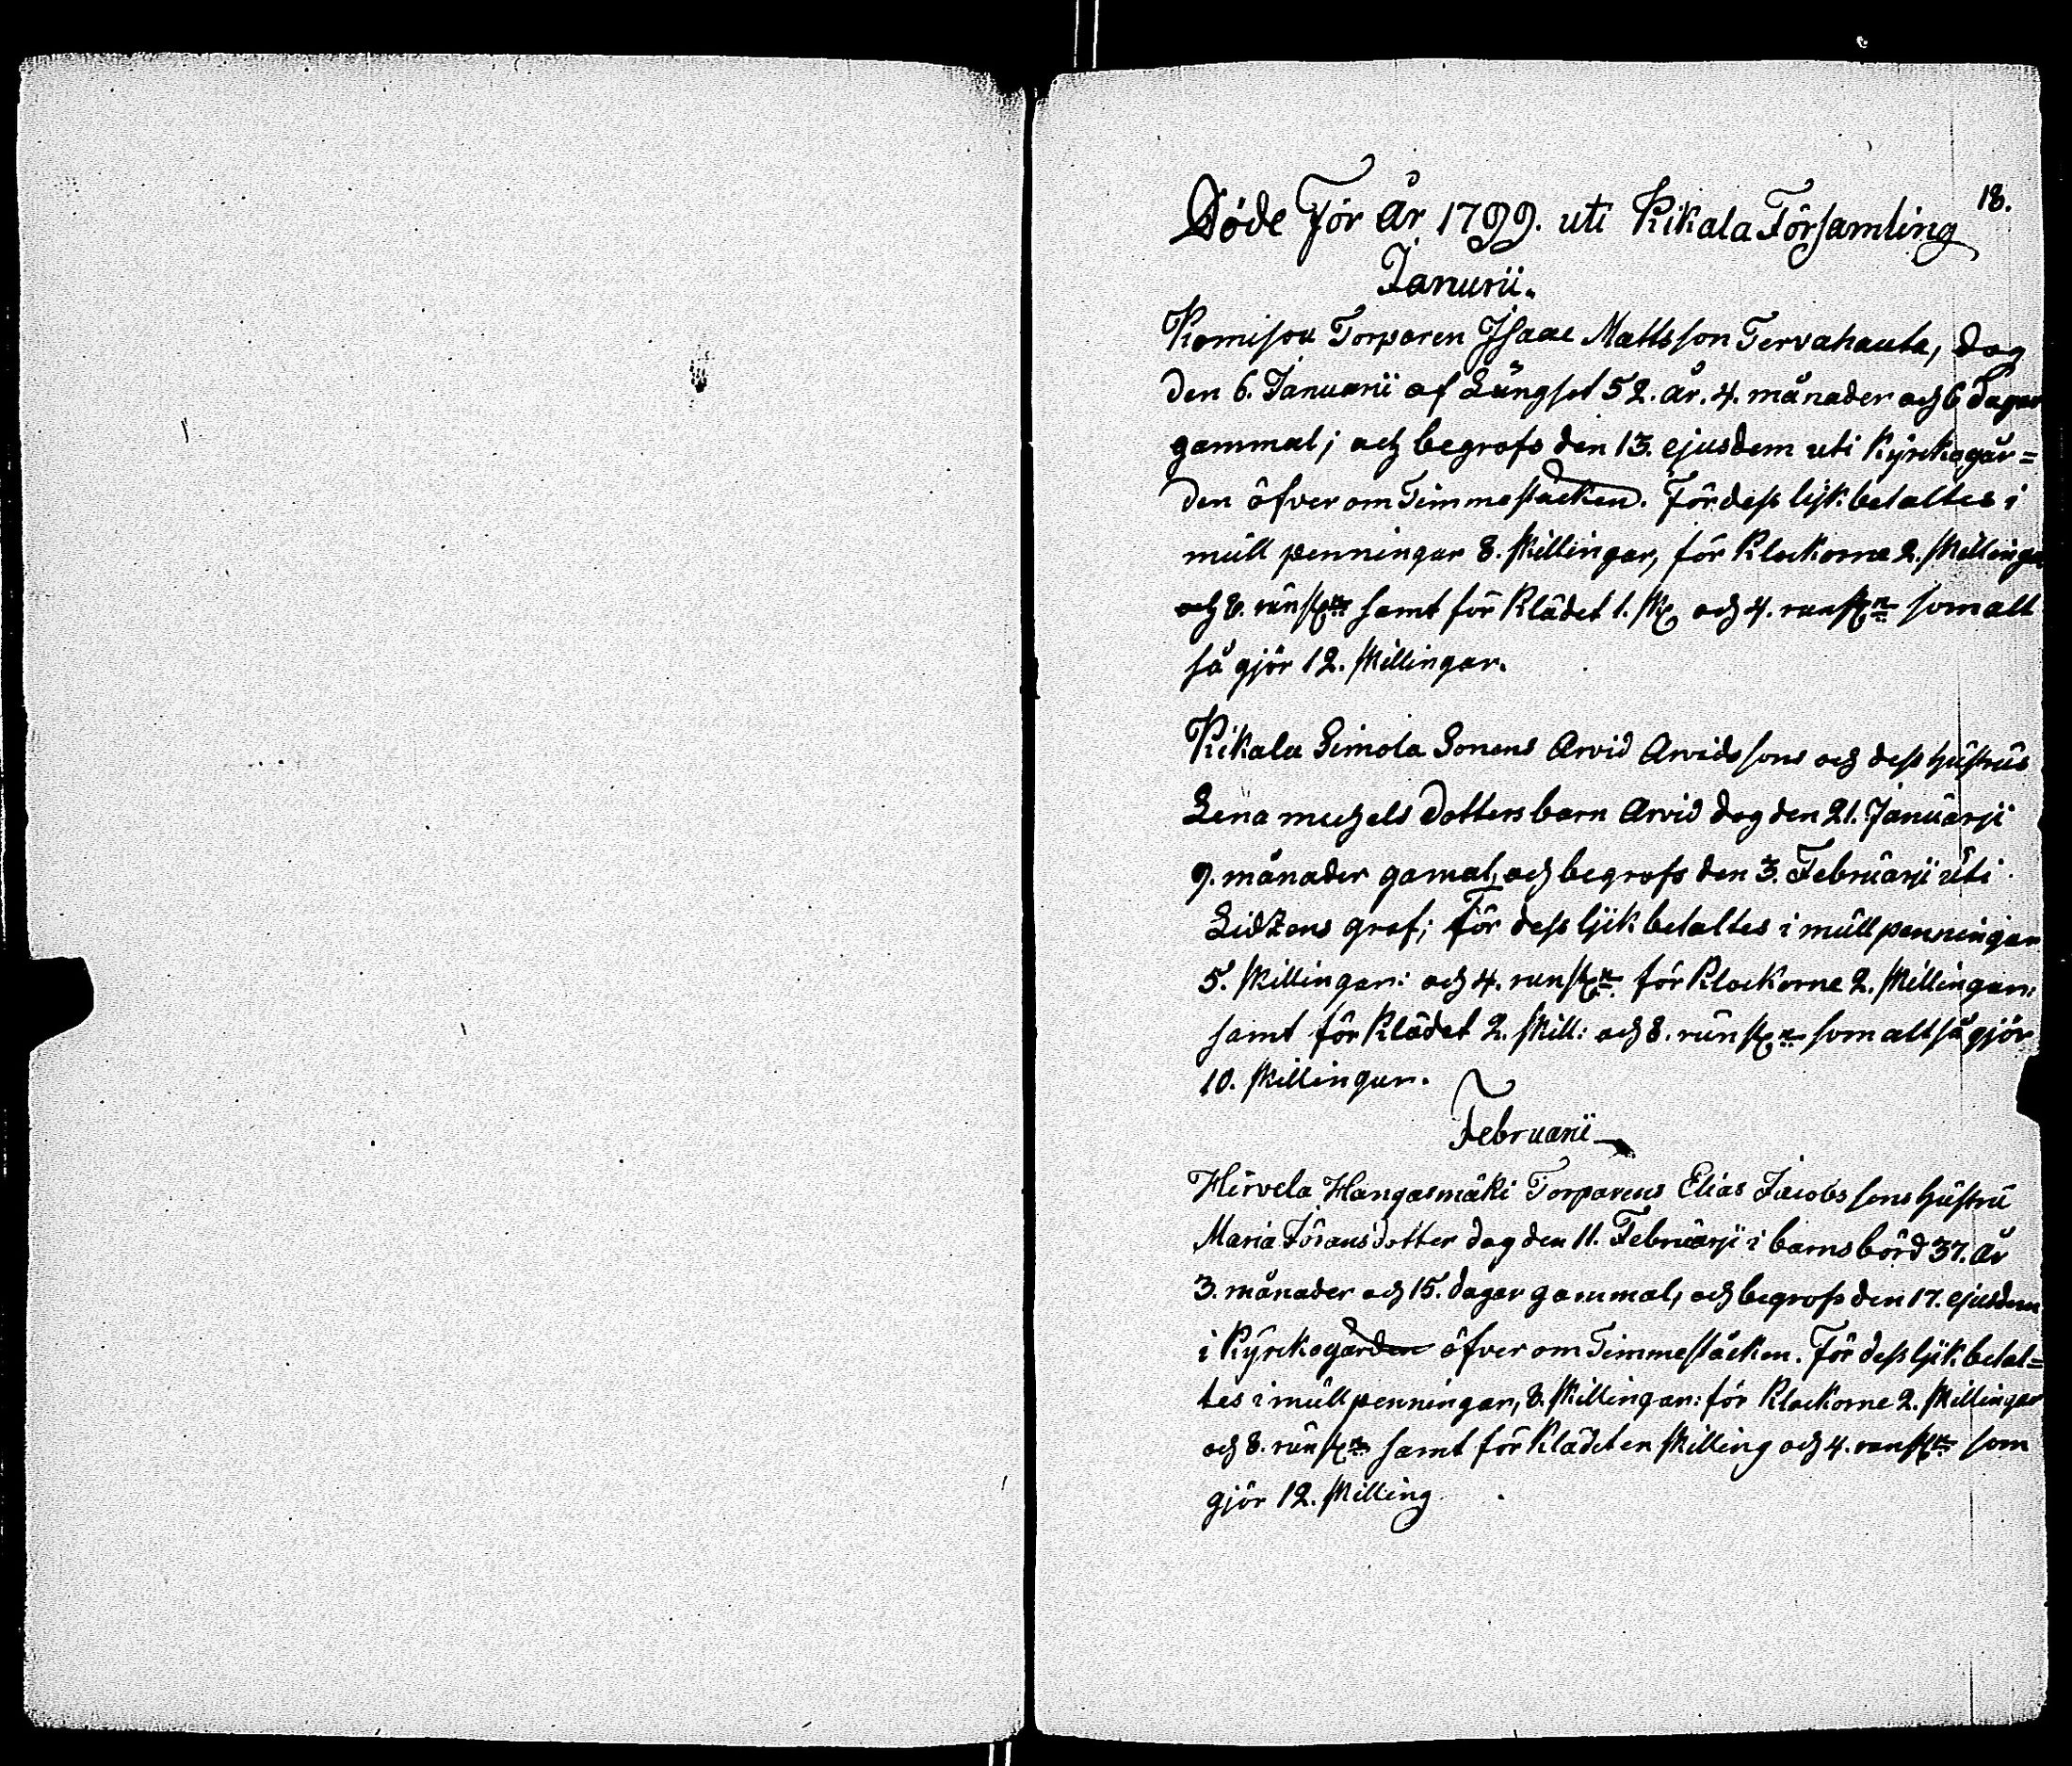 18.
Döde För år 1799. uti Kikala Församling
Janurii.
Komisou Torparen Isaac Mattsson Tervahauta, dog
den 6. Januarii af Långsot 52. år. 4. månader och 6 dagar
gammal; och begrofs den 13. ejusdem uti Kÿrckogår=
den öfver om Timmestäcken. För dess lijk betaltes i
mull penningar 8. skillingar, för Klockorne 2. skillingar
och 8. runst samt för Klädet 1. sk och 4. runst som alt
så gjör 12. skillingar.
Kikala Simola Sonens Arvid Arvidssons och dess hustrus
Lena michels dotters barn Arvid dog den 21. Januarji
9. månader gamal, och begrofs den 3. Februarji uti
Lidzens graf; För dess ljik betaltes i mull penningar
5. skillingar: och 4. runst för Klockorne 2. skillingar:
samt för Klädet 2. skill: och 8. runst som alt så gjör
10. skillingar.
Februarii
Hirvela Hangasmäki Torparens Elias Jacobssons hustru
Maria Jöransdotter dog den 11. Februarji i barnsbörd 37. år
3. månader och 15. dagar gammal, och begrofs den 17. ejusdem
i Kÿrckogården öfver om Timmestäcken. För dess ljik betal=
tes i mull penningar, 8. skillingar: för Klockorne 2. skillingar
och 8. runst samt för Klädet en skilling och 4. runst som
gjör 12. skilling